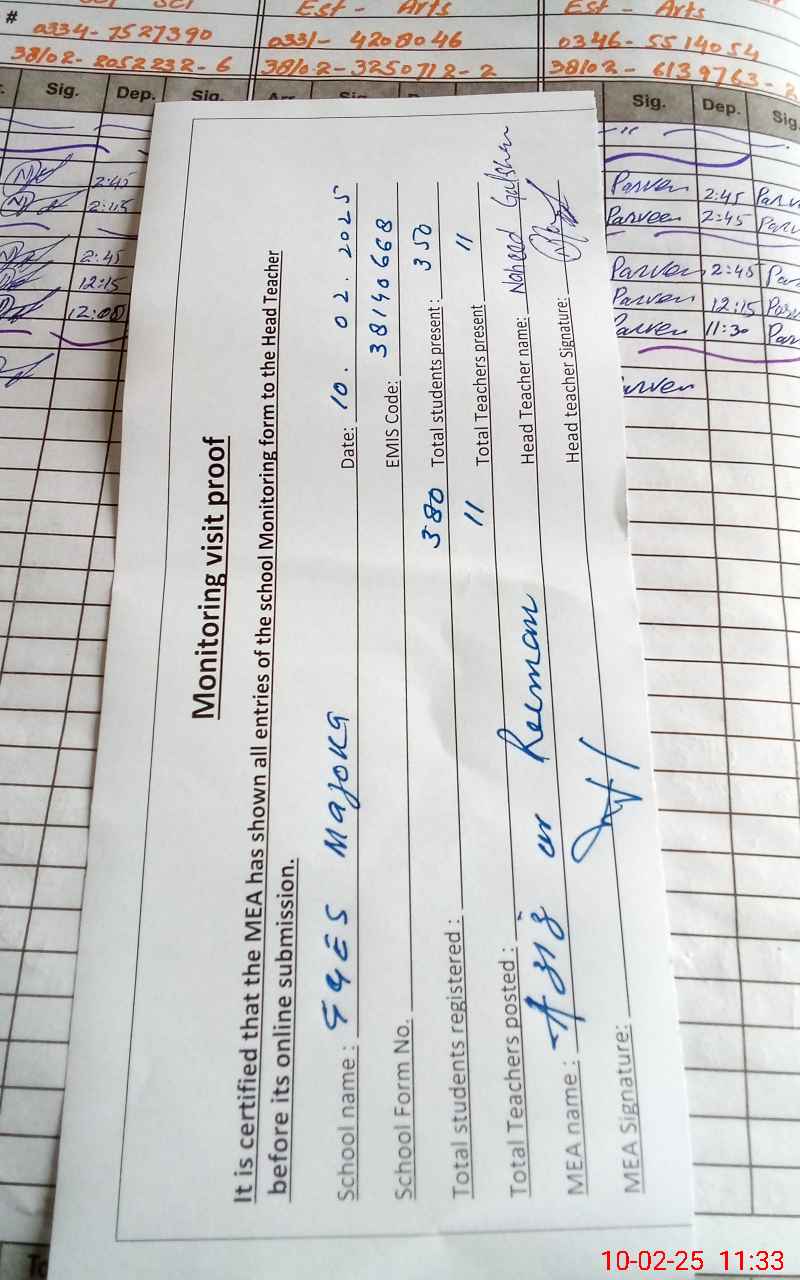 Est - Arts Est - Arts
# 0334-7527390 0331-4208046 0346-5514054
38102-2052232-6 38102-3250712-2 38102-6139763-2
Sig. Dep. Sig. Sig. Dep. Sig.
2:45 Parveen 2:45
2:45 Parveen 2:45
2:45 Parveen 2:45
12:15 Parveen 12:15
12:00 Parveen 11:30
Parveen
Monitoring visit proof
It is certified that the MEA has shown all entries of the school Monitoring form to the Head Teacher
before its online submission.
School name : GGES Majoka Date: 10. 02. 2025
School Form No. EMIS Code: 38140668
Total students registered : 380 Total students present : 350
Total Teachers posted : 11 Total Teachers present 11
MEA name : Aziz ur Rehman Head Teacher name: Naheed Gulshan
MEA Signature: Head teacher Signature:
10-02-25 11:33